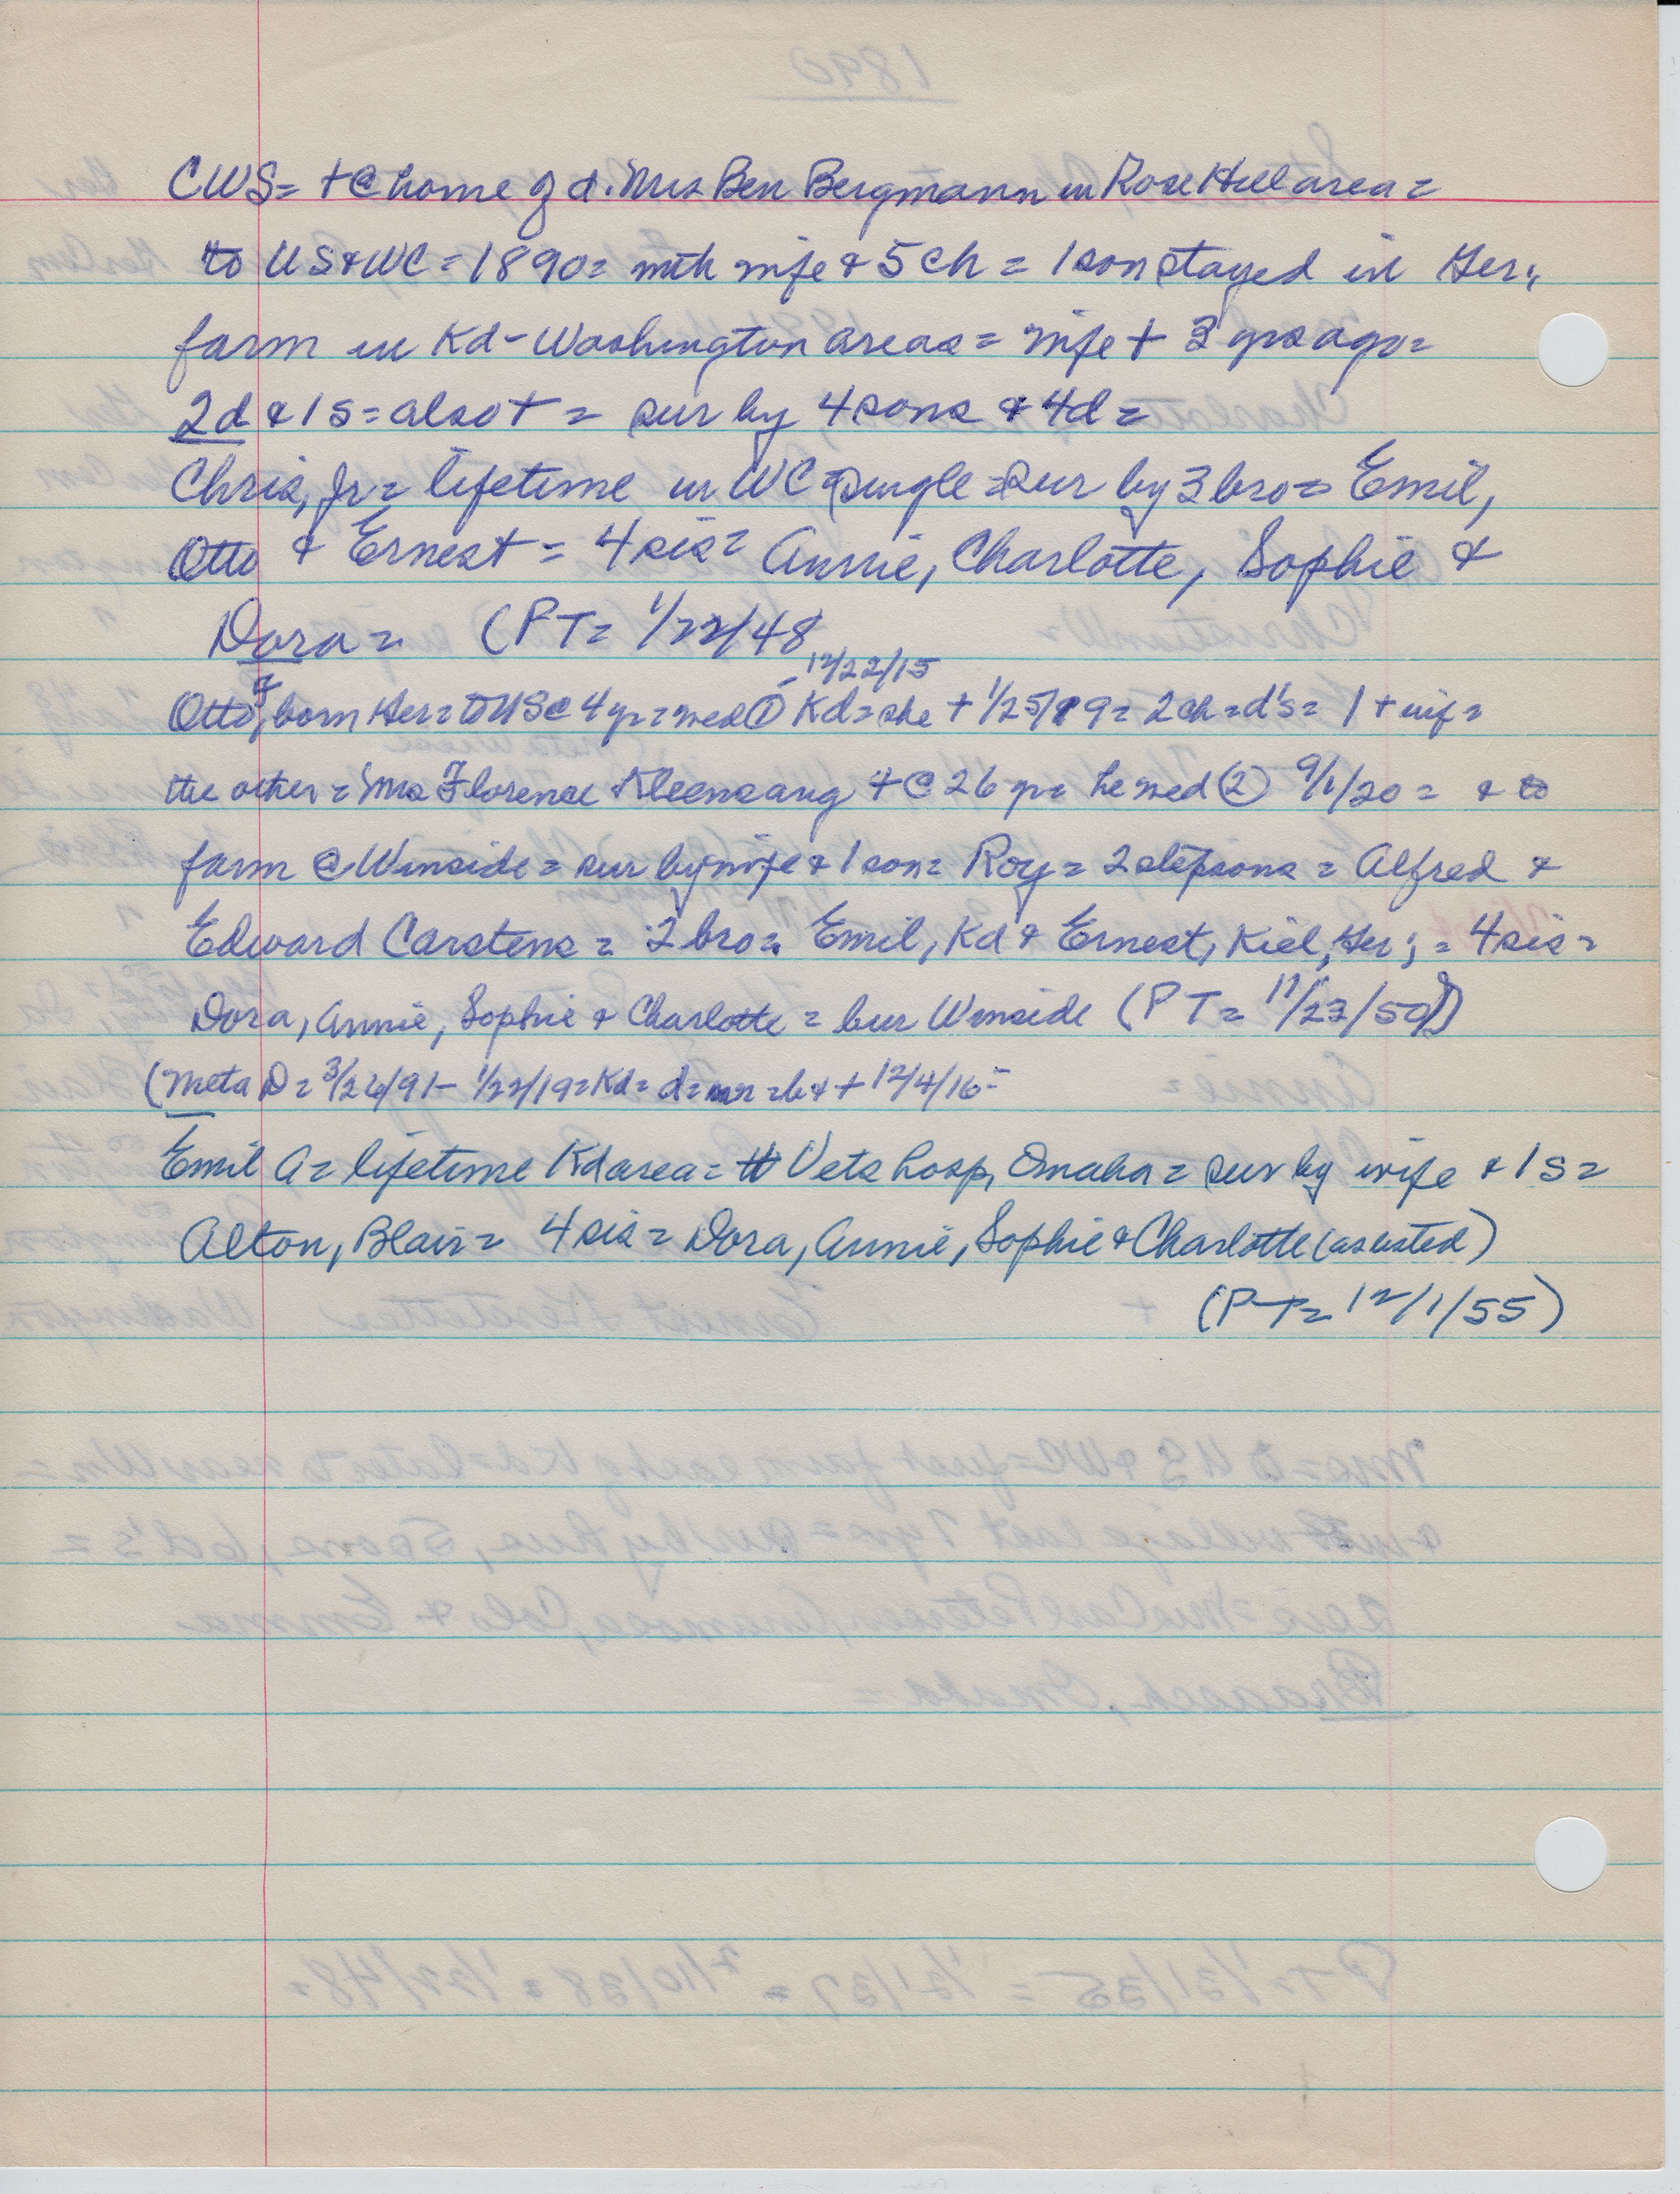 CWS= +@ home of d. Mrs Ben Bergmann in Rose Hill area=
to US & WC = 1890= with wife & 5 ch = 1 son stayed in Ger,
farm in Kd-Washington areas = wife + 3 yrs ago=
2d & 1 s = also + = sur by 4 sons & 4d =
Chris, Jr = lifetime in WC = single = sur by 3 bro = Emil,
Otto & Ernest = 4 sis = Annie, Charlotte, Sophie &
Dora = (PT= 1/22/48
12/22/15
Otto F, born Ger = to US @ 4 yr = med ① Kd = she + 1/25/19 = 2 ch = d's = 1 + inf =
the other = Mrs Florence Kleensang + @ 26 yr = he med ② 9/1/20 = & to
farm @ Winside = sur by wife & 1 son = Roy = 2 stepsons = Alfred &
Edward Carstens = 2 bro = Emil, Kd & Ernest, Kiel, Ger; = 4 sis =
Dora, Annie, Sophie & Charlotte = bur Winside (PT= 11/23/50)
(Meta D = 3/26/91 - 1/22/19 = Kd = d = = b & + 12/4/16 =
Emil A = lifetime Kd area = Vets hosp, Omaha = sur by wife & 1 s =
Alton, Blair = 4 sis = Dora, Annie, Sophie & Charlotte (as listed)
(PT= 12/1/55)